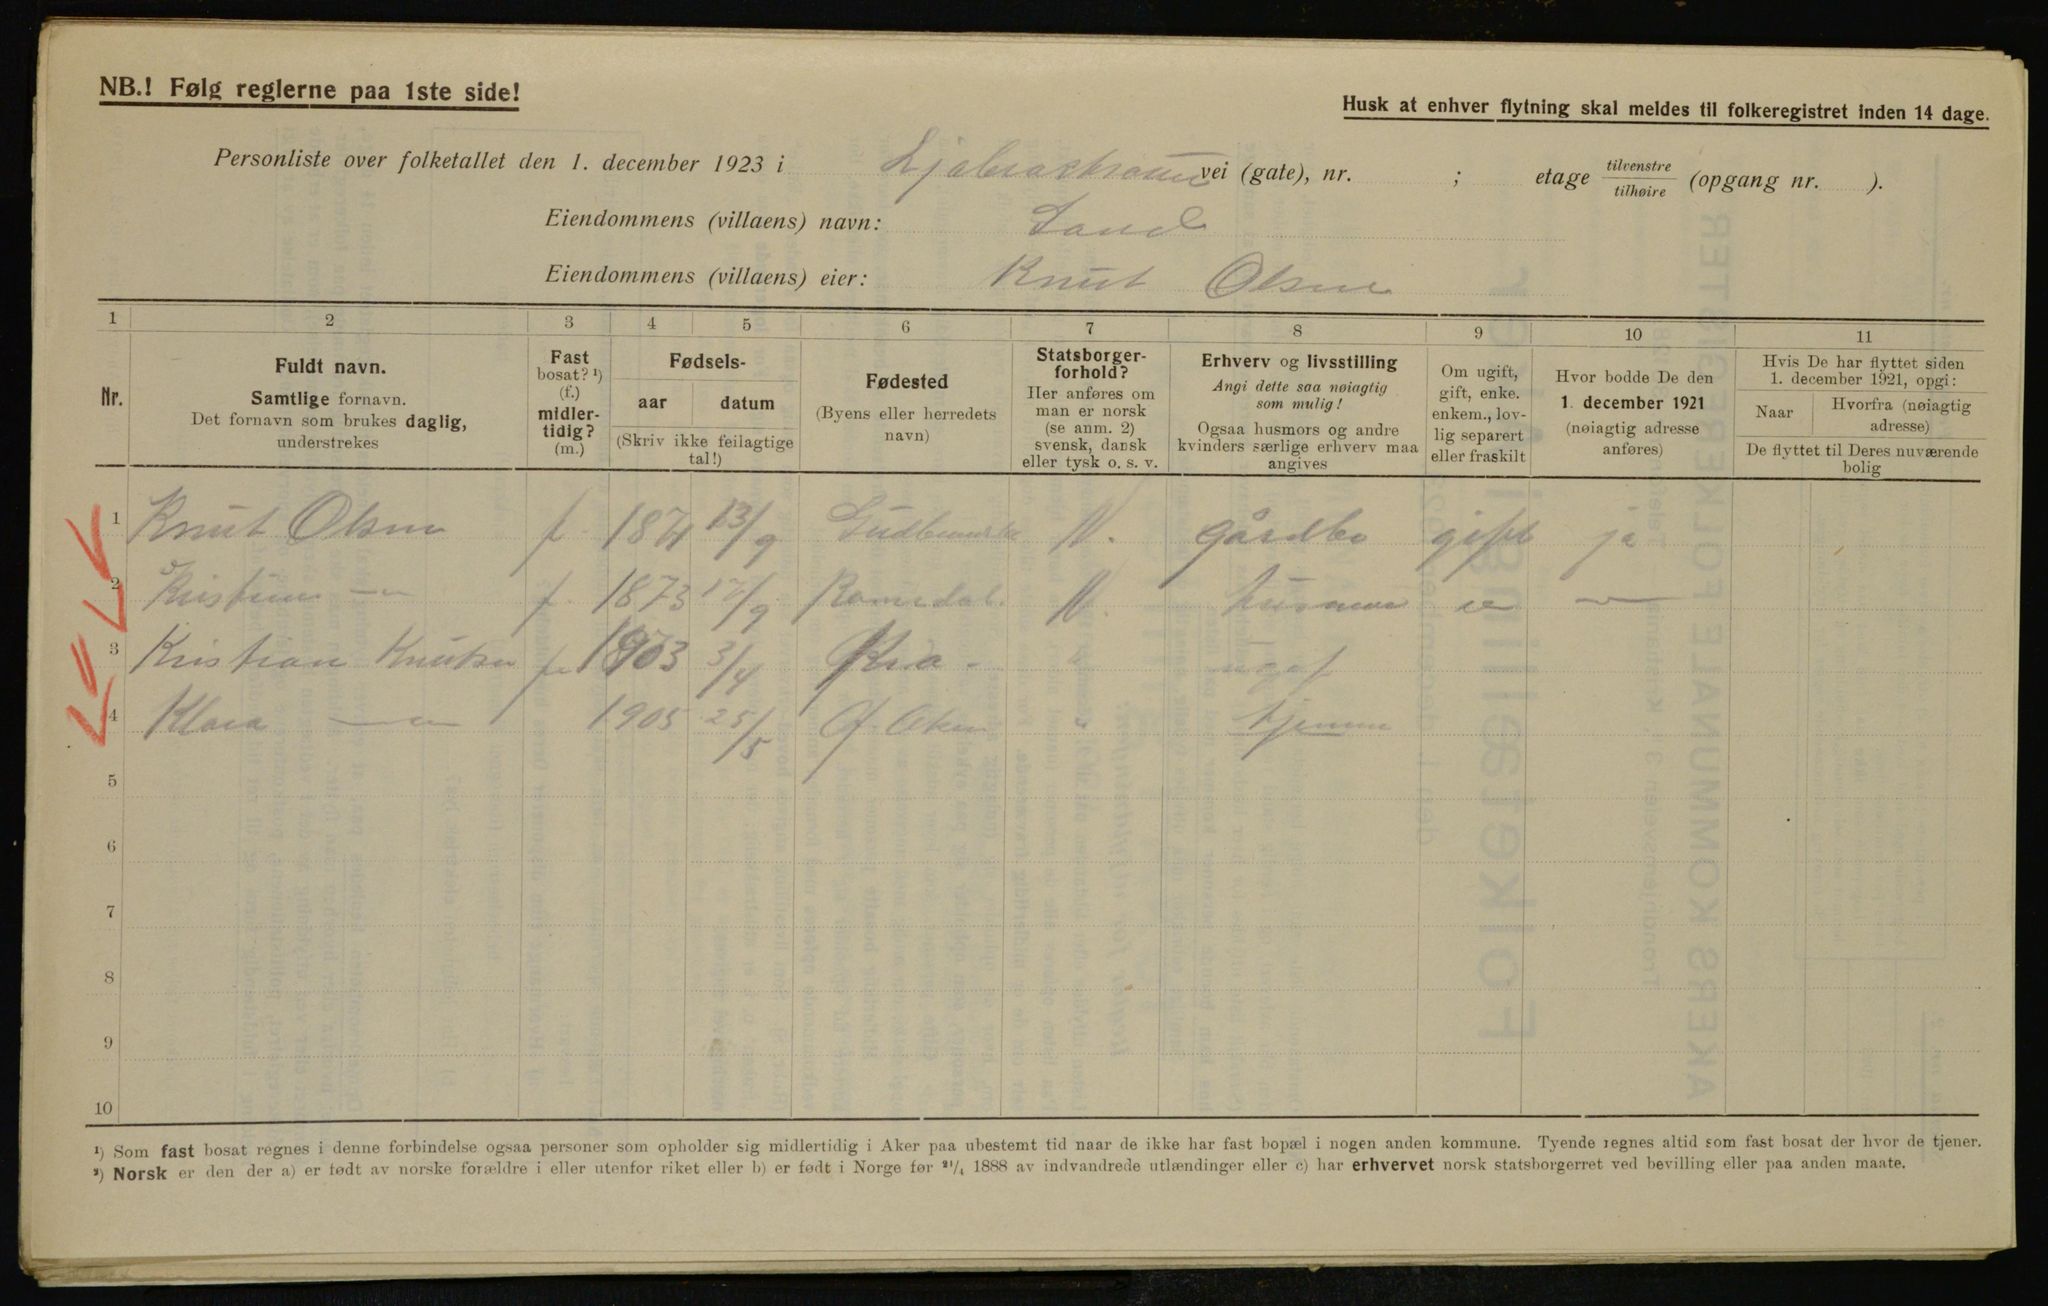 NB.! Følg reglerne paa 1ste side!
Husk at enhver flytning skal meldes til folkeregistret inden 14 dage.
Personliste over folketallet den 1. december 1923 i vei (gate), nr. ; etage tilvenstre tilhøire (opgang nr. ).
Eiendommens (villaens) navn: Sand
Eiendommens (villaens) eier: Knut Olsen
1 2 3 4 5 6 7 8 9 10 11
Nr.
Fuldt navn.
Samtlige fornavn.
Det fornavn som brukes daglig,
understrekes
Fast
bosat? ¹)
(f.)
midler-
tidig?
(m.)
Fødsels-
aar datum
(Skriv ikke feilagtige
tal!)
Fødested
(Byens eller herredets
navn)
Statsborger-
forhold?
Her anføres om
man er norsk
(se anm. 2)
svensk, dansk
eller tysk o. s. v.
Erhverv og livsstilling
Angi dette saa nøiagtig
som mulig!
Ogsaa husmors og andre
kvinders særlige erhverv maa
angives
Om ugift,
gift, enke.
enkem., lov-
lig separert
eller fraskilt
Hvor bodde De den
1. december 1921
(nøiagtig adresse
anføres)
Hvis De har flyttet siden
1. december 1921, opgi:
Naar Hvorfra (nøiagtig
adresse)
De flyttet til Deres nuværende
bolig
1 Knut Olsen f. 1871 13/9 N. gårdbr gift ja
2 f. 1873 17/9 Romsdal. N.
3 Kristian Knutsen f. 1903 3/4 Kra. "
4 Klara — 1905 25/5 Ø. Aker " hjemme
5
6
7
8
9
10
¹) Som fast bosat regnes i denne forbindelse ogsaa personer som opholder sig midlertidig i Aker paa ubestemt tid naar de ikke har fast bopæl i nogen anden kommune. Tyende regnes altid som fast bosat der hvor de tjener.
²) Norsk er den der a) er født av norske forældre i eller utenfor riket eller b) er født i Norge før ²¹/₄ 1888 av indvandrede utlændinger eller c) har erhvervet norsk statsborgerret ved bevilling eller paa anden maate.